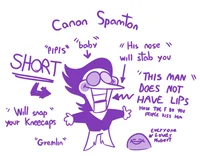 Canon Spamton
"PIPIS"
"baby"
"His nose
will stab you
SHORT
"THIS MAN
DOES NOT
HAVE LIPS
HOW THE F DO YOU
PEOPLE KISS HIM
"Will snap
your kneecaps
"Gremlin"
EVERYONE
LOVES